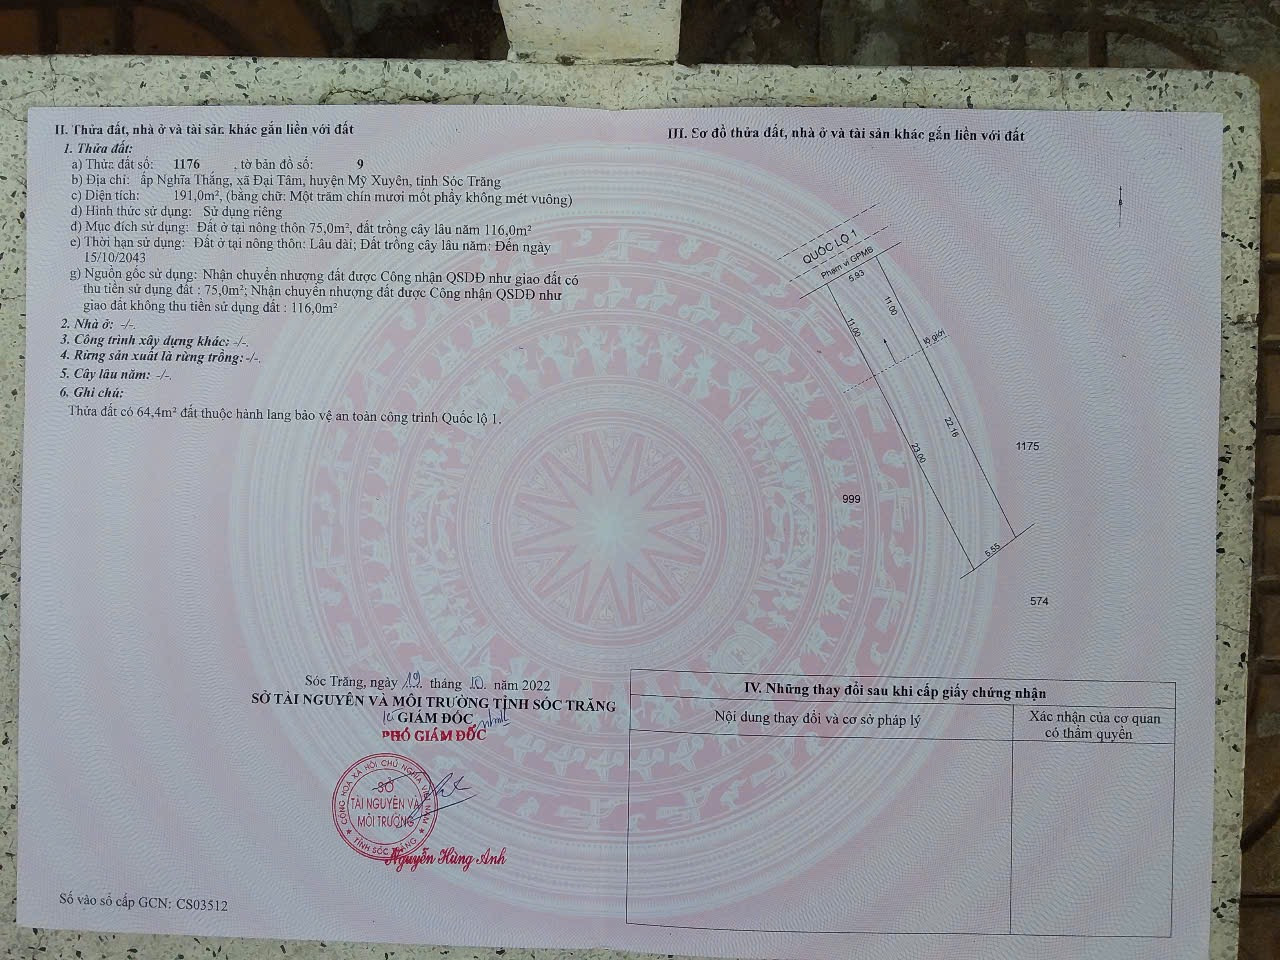 II. Thửa đất, nhà ở và tài sản khác gắn liền với đất
1. Thửa đất:
a) Thửa đất số: 1176 , tờ bản đồ số: 9
b) Địa chỉ: ấp Nghĩa Thắng, xã Đại Tâm, huyện Mỹ Xuyên, tỉnh Sóc Trăng
c) Diện tích: 191,0m², (bằng chữ: Một trăm chín mươi mốt phẩy không mét vuông)
d) Hình thức sử dụng: Sử dụng riêng
đ) Mục đích sử dụng: Đất ở tại nông thôn 75,0m², đất trồng cây lâu năm 116,0m²
e) Thời hạn sử dụng: Đất ở tại nông thôn: Lâu dài; Đất trồng cây lâu năm: Đến ngày
15/10/2043
g) Nguồn gốc sử dụng: Nhận chuyển nhượng đất được Công nhận QSDĐ như giao đất có
thu tiền sử dụng đất : 75,0m²; Nhận chuyển nhượng đất được Công nhận QSDĐ như
giao đất không thu tiền sử dụng đất : 116,0m²
2. Nhà ở: -/-.
3. Công trình xây dựng khác: -/-.
4. Rừng sản xuất là rừng trồng: -/-.
5. Cây lâu năm: -/-.
6. Ghi chú:
Thửa đất có 64,4m² đất thuộc hành lang bảo vệ an toàn công trình Quốc lộ 1.
Sóc Trăng, ngày 19 tháng 10. năm 2022
SỞ TÀI NGUYÊN VÀ MÔI TRƯỜNG TỈNH SÓC TRĂNG
GIÁM ĐỐC
PHÓ GIÁM ĐỐC
CỘNG HOÀ XÃ HỘI CHỦ NGHĨA VIỆT NAM
SỞ
TÀI NGUYÊN VÀ
MÔI TRƯỜNG
★ TỈNH SÓC TRĂNG ★
Nguyễn Hùng Anh
Số vào sổ cấp GCN: CS03512
III. Sơ đồ thửa đất, nhà ở và tài sản khác gắn liền với đất
QUỐC LỘ 1
Phạm vi GPMB
5.93
11.00
11.00
lộ giới
22.16
23.00
1175
999
5.55
574
IV. Những thay đổi sau khi cấp giấy chứng nhận
Nội dung thay đổi và cơ sở pháp lý
Xác nhận của cơ quan
có thẩm quyền